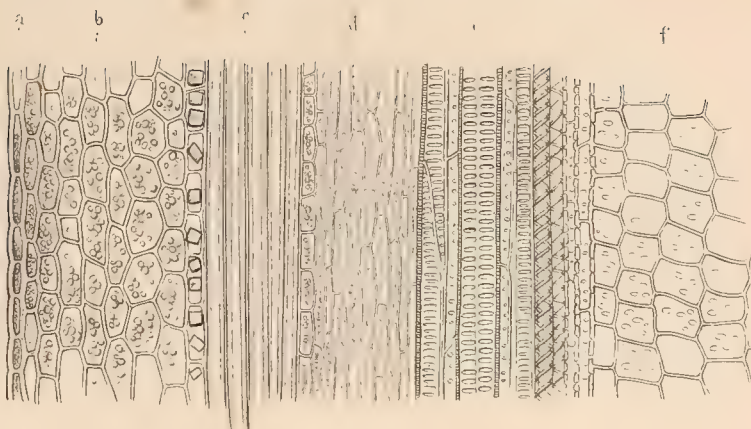 a b c d f